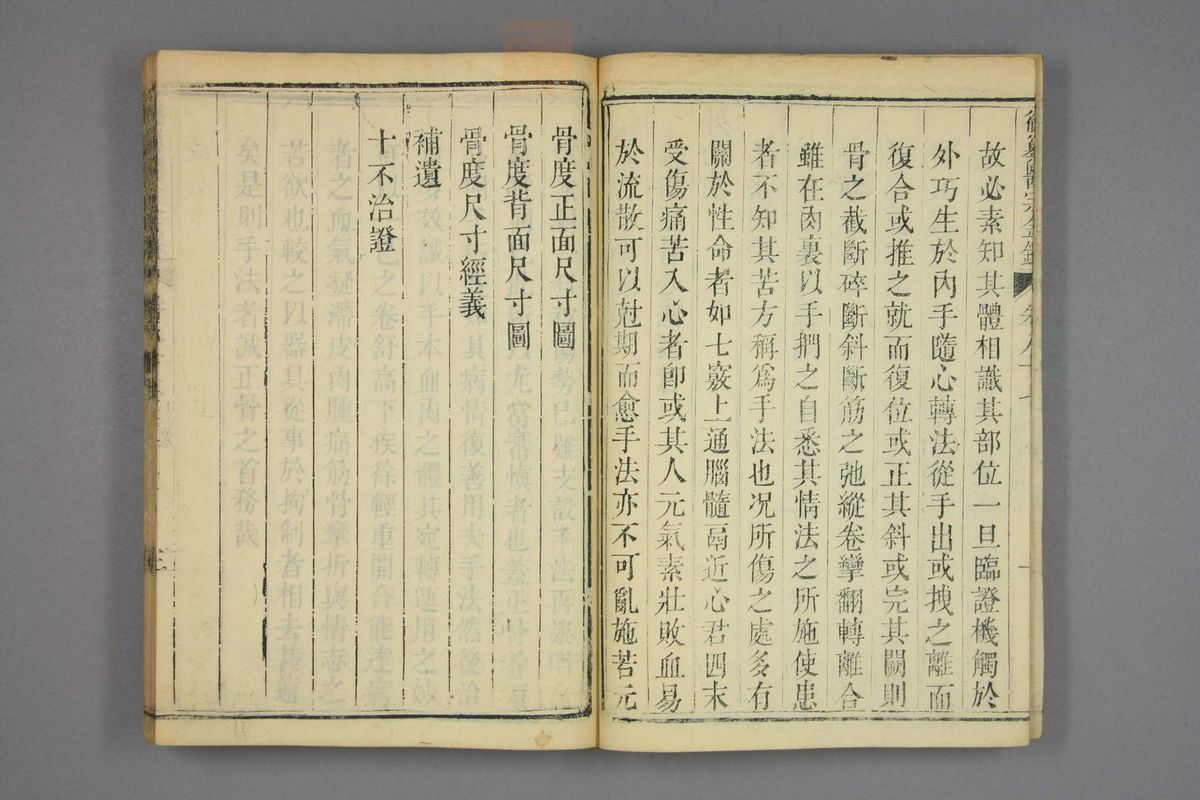 御纂醫宗金鑑 卷八十七
故必素知其體相識其部位一旦臨證機觸於
外巧生於內手隨心轉法從手出或拽之離而
復合或推之就而復位或正其斜或完其闕則
骨之截斷碎斷斜斷筋之弛縱卷攣翻轉離合
雖在肉裏以手捫之自悉其情法之所施使患
者不知其苦方稱爲手法也况所傷之處多有
關於性命者如七竅上通腦髓鬲近心君四末
受傷痛苦入心者卽或其人元氣素壯敗血易
於流散可以尅期而愈手法亦不可亂施若元
骨度正面尺寸圖
骨度背面尺寸圖
骨度尺寸經義
補遺
十不治證